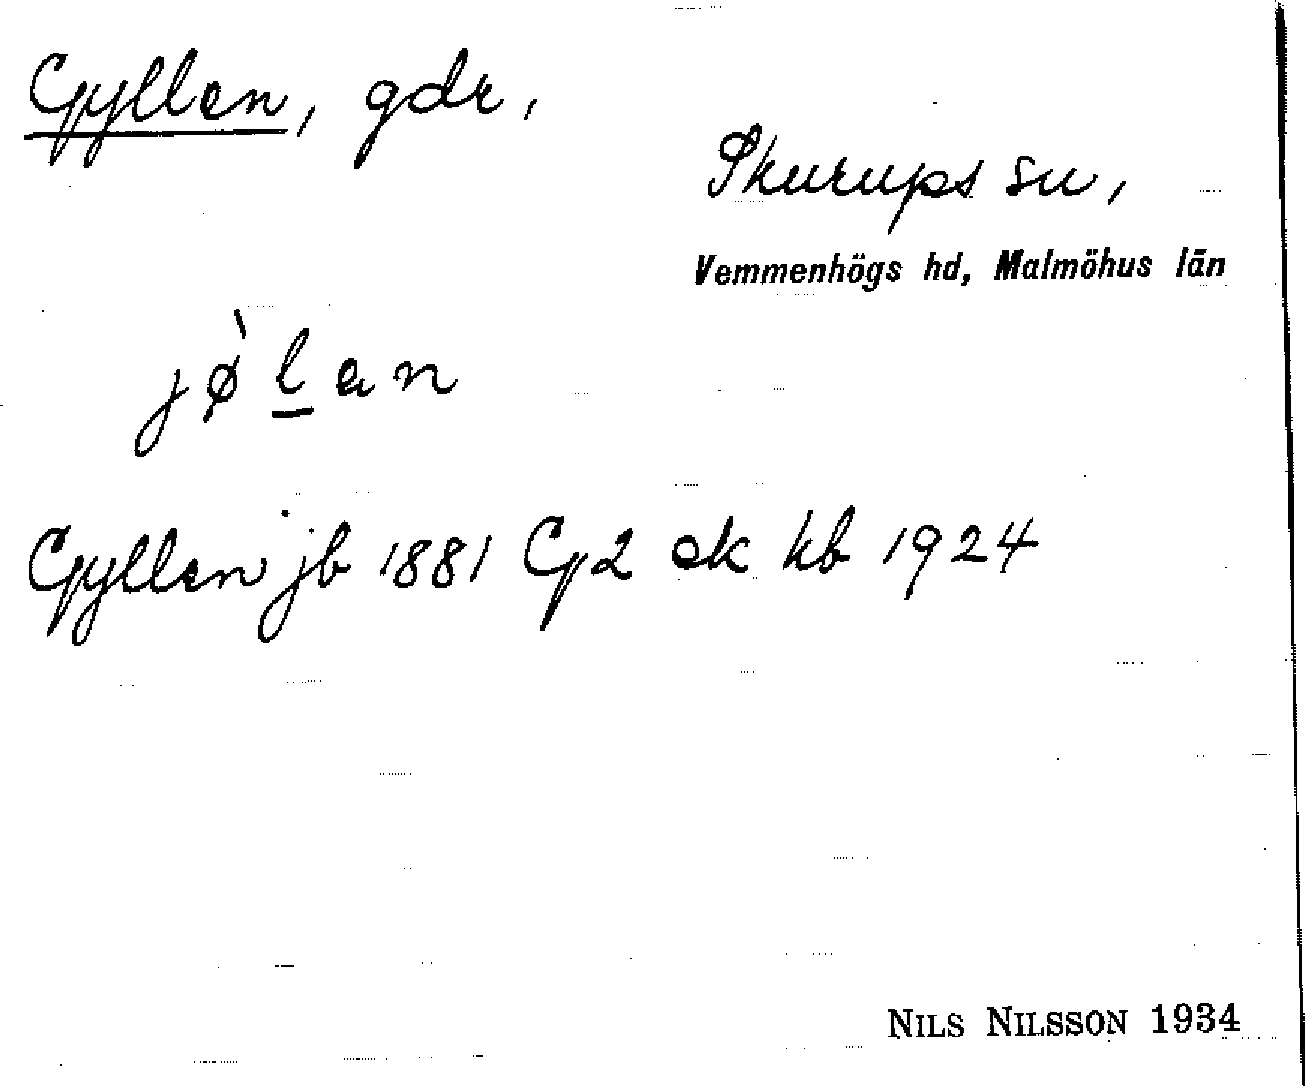 Gyllen, gdr,
Skurups sn,
Vemmenhögs hd, Malmöhus län
jø̀l̲an
Gyllen jb 1881 G2 ek kb 1924
NILS NILSSON 1934